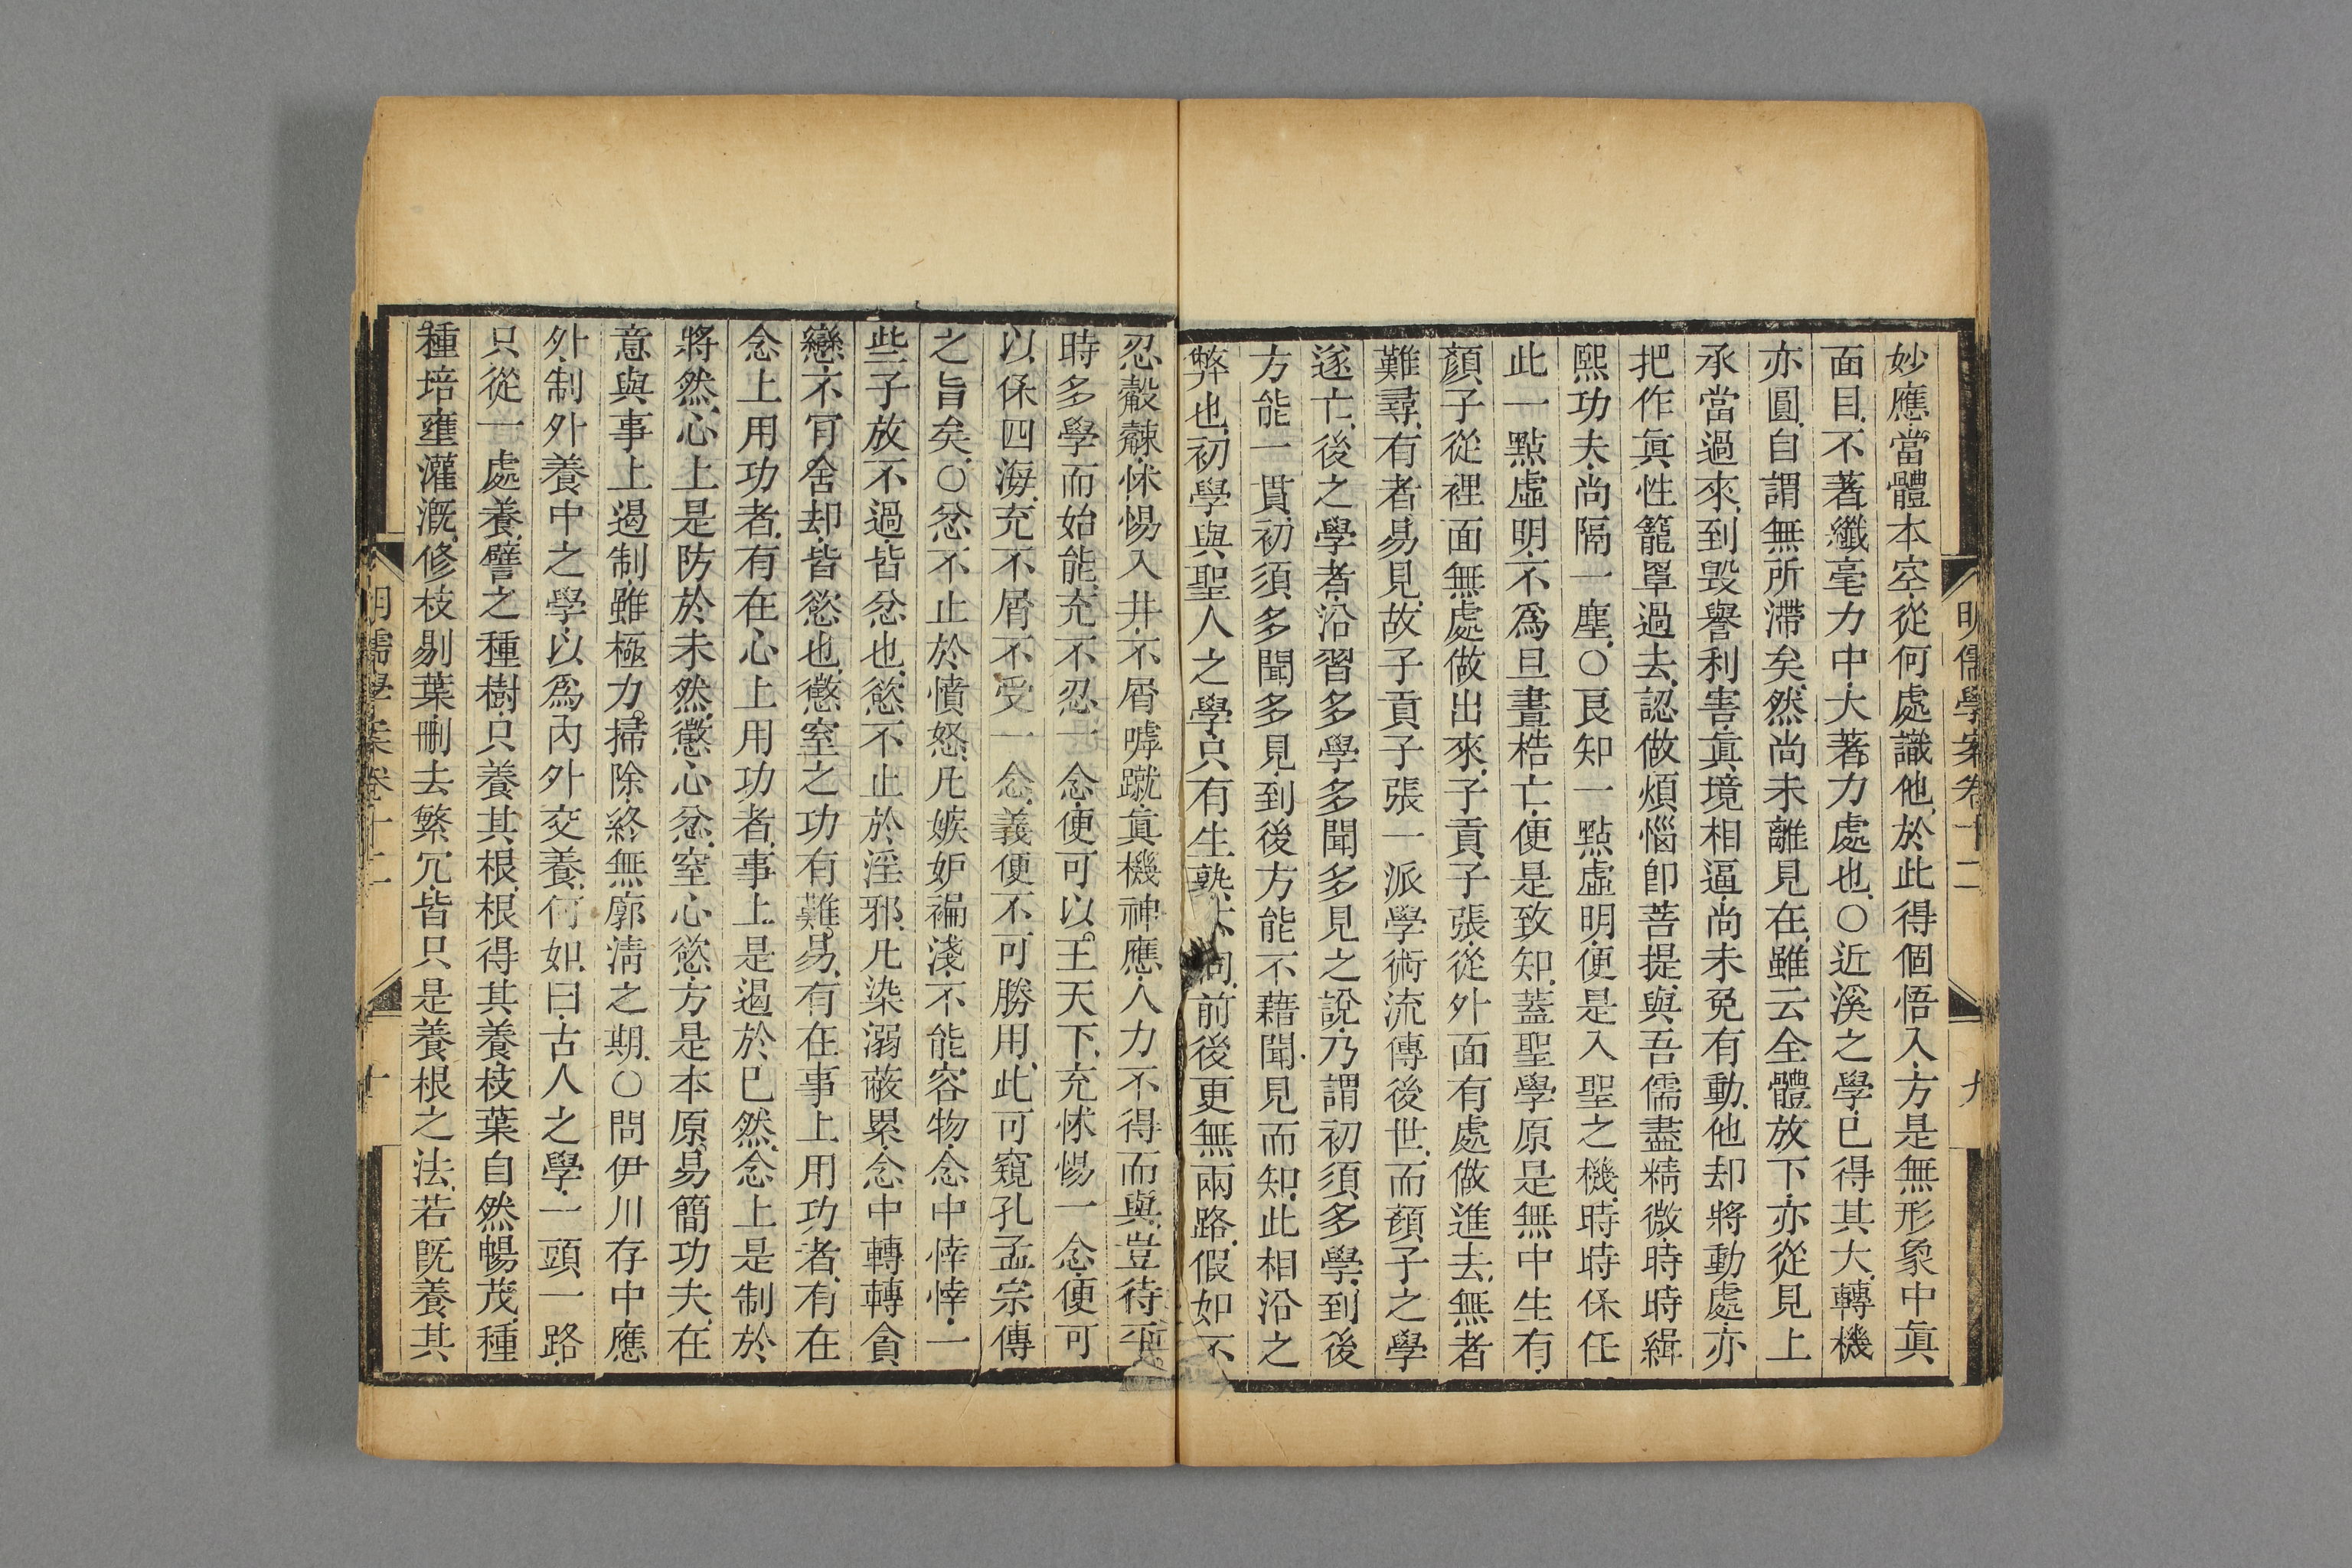 明儒學案卷十二 九
妙應當體本空從何處識他於此得個悟入方是無形象中眞
面目不著纖毫力中大著力處也○近溪之學已得其大轉機
亦圓自謂無所滯矣然尚未離見在雖云全體放下亦從見上
承當過來到毀譽利害眞境相逼尚未免有動他却將動處亦
把作眞性籠罩過去認做煩惱卽菩提與吾儒盡精微時時緝
熙功夫尚隔一塵○良知一點虛明便是入聖之機時時保任
此一點虛明不爲旦晝梏亡便是致知蓋聖學原是無中生有
顏子從裡面無處做出來子貢子張從外面有處做進去無者
難尋有者易見故子貢子張一派學術流傳後世而顏子之學
遂亡後之學者沿習多學多聞多見之說乃謂初須多學到後
方能一貫初須多聞多見到後方能不藉聞見而知此相沿之
弊也初學與聖人之學只有生熟不同前後更無兩路假如不
忍觳觫怵惕入井不屑嘑蹴眞機神應人力不得而與豈待平
時多學而始能充不忍一念便可以王天下充怵惕一念便可
以保四海充不屑不受一念義便不可勝用此可窺孔孟宗傳
之旨矣○忿不止於憤怒凡嫉妒褊淺不能容物念中悻悻一
些子放不過皆忿也慾不止於淫邪凡染溺蔽累念中轉轉貪
戀不肎舍却皆慾也懲窒之功有難易有在事上用功者有在
念上用功者有在心上用功者事上是遏於已然念上是制於
將然心上是防於未然懲心忿窒心慾方是本原易簡功夫在
意與事上遏制雖極力掃除終無廓淸之期○問伊川存中應
外制外養中之學以爲內外交養何如曰古人之學一頭一路
只從一處養譬之種樹只養其根根得其養枝葉自然暢茂種
種培壅灌漑修枝剔葉刪去繁冗皆只是養根之法若旣養其
明儒學案卷十二 十